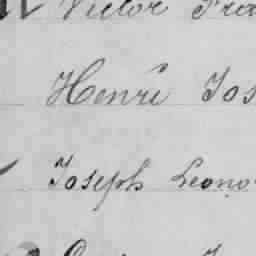 Victor Fra
Henri Jos
Joseph Leono